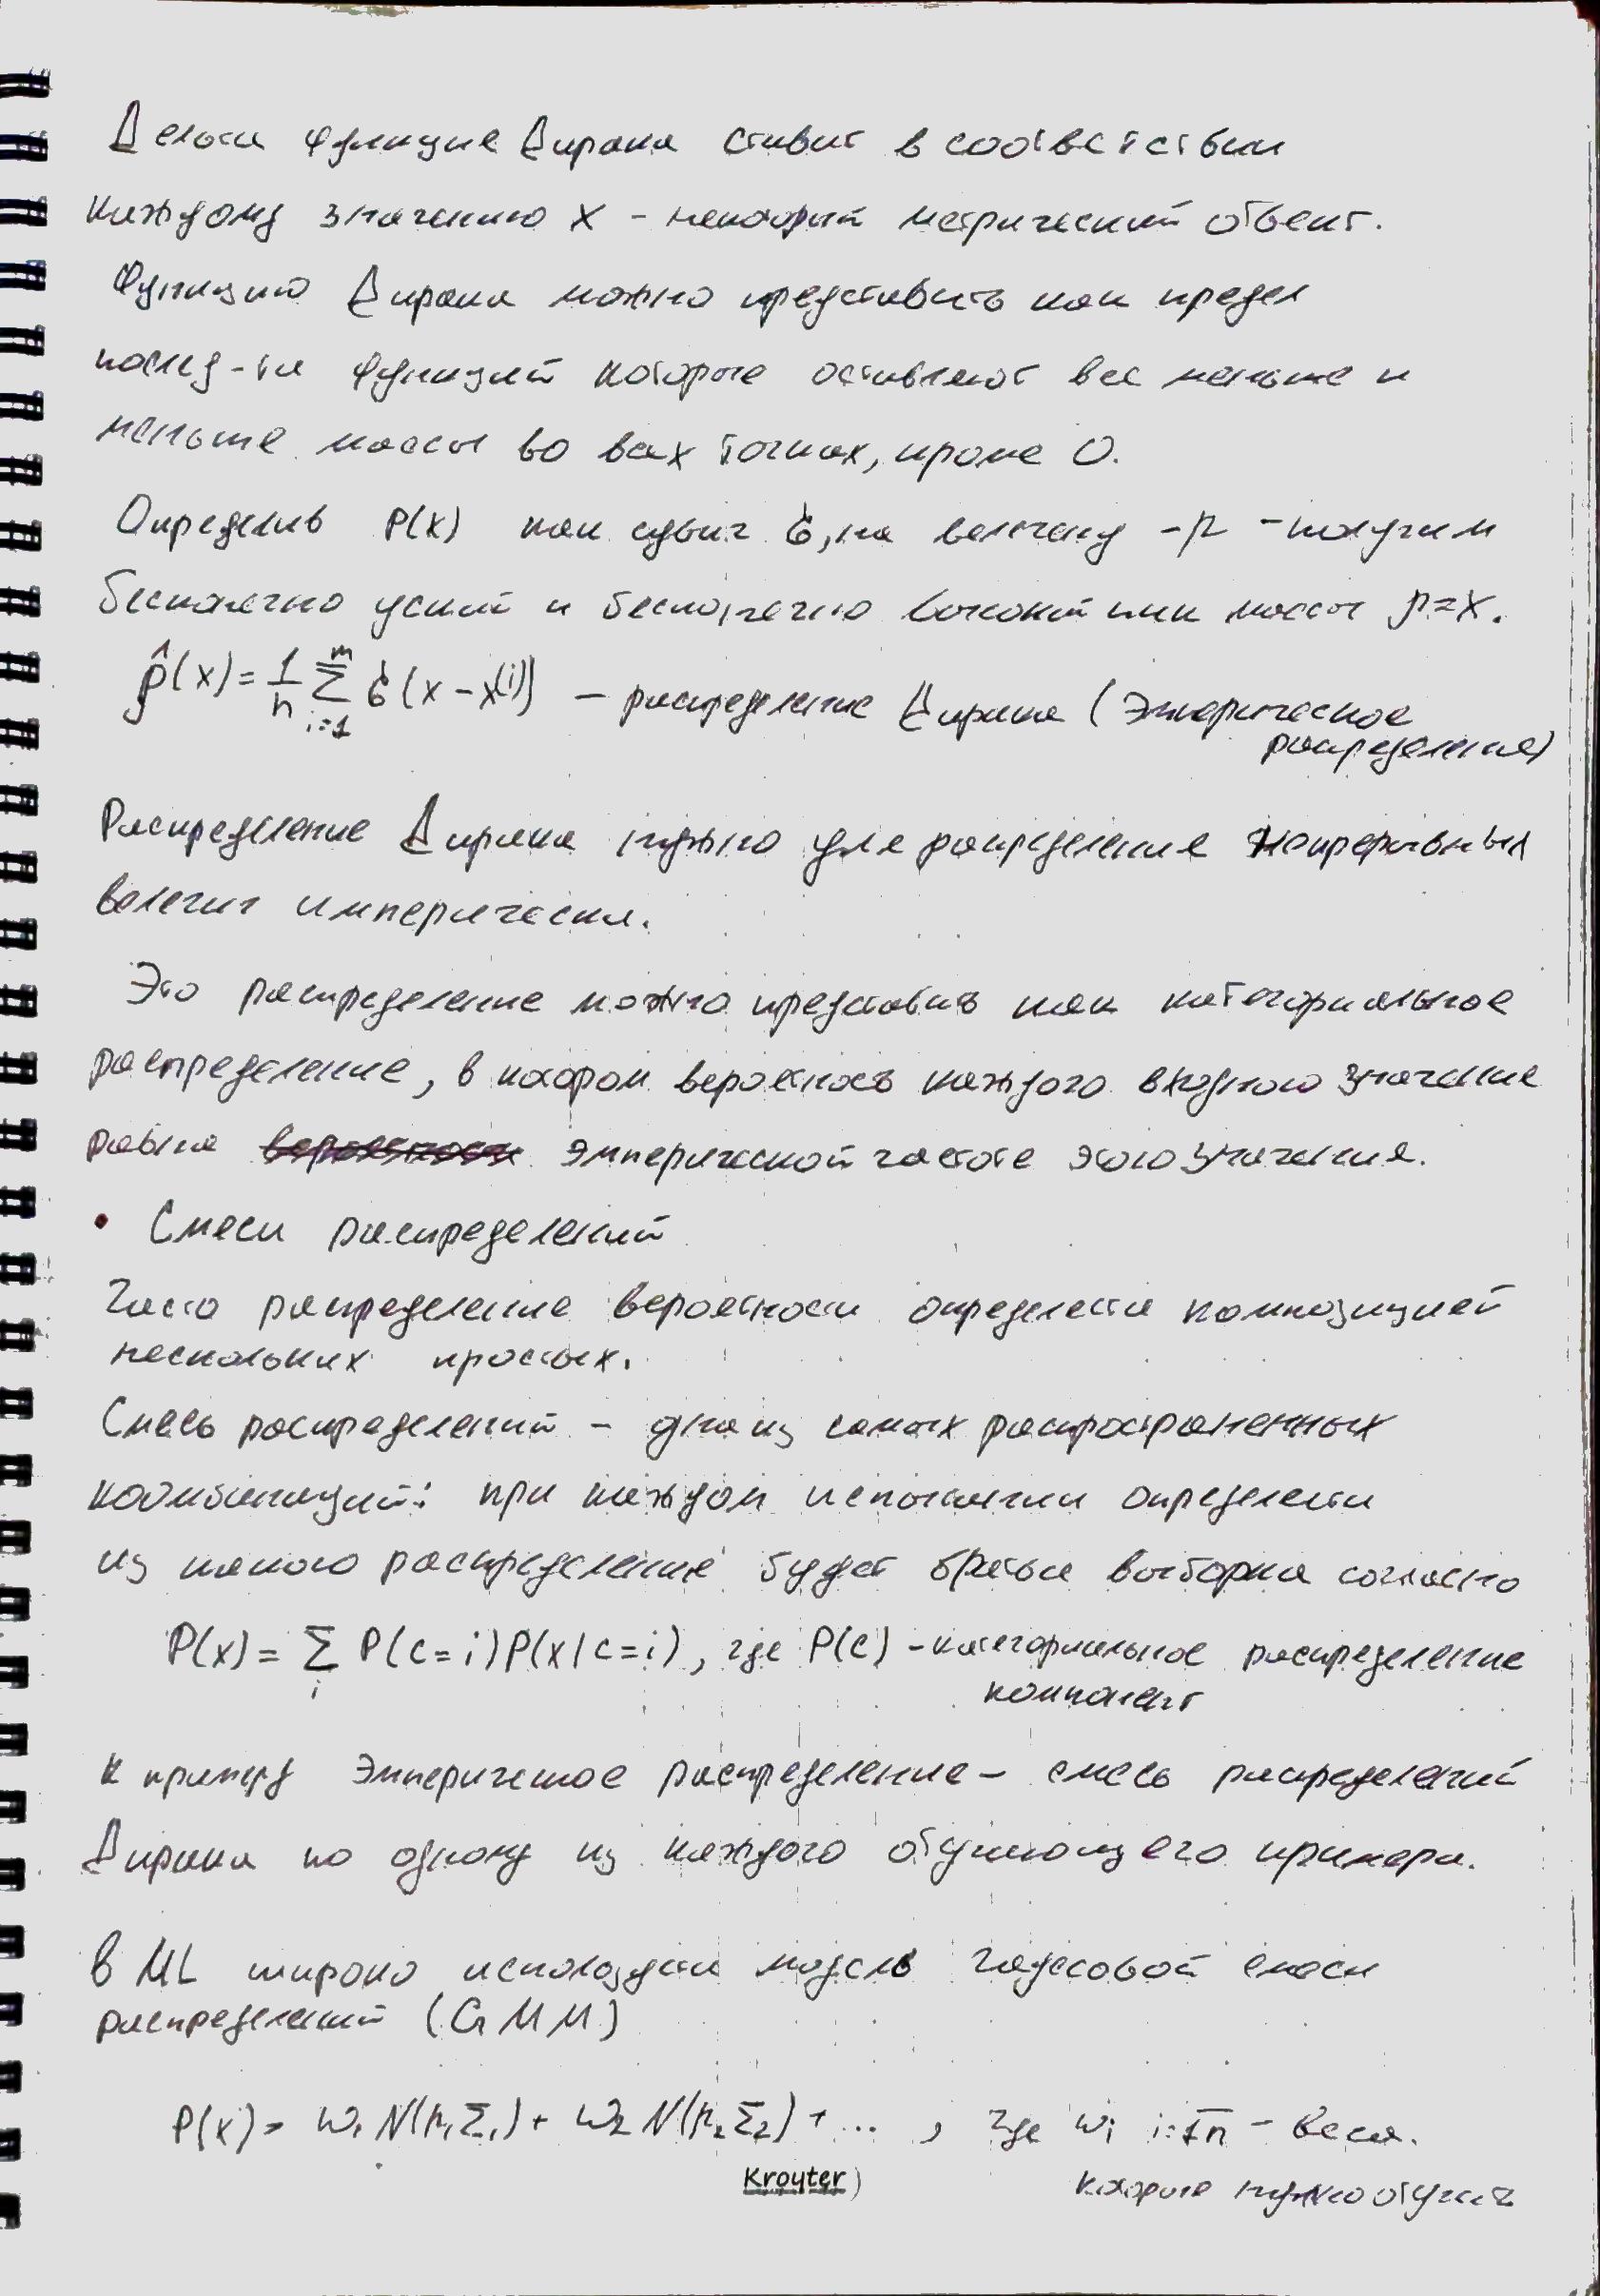 Дельта функция Дирака ставит в соответствии
каждому значению x - некоторый метрический объект.
Функцию Дирака можно представить как предел
послед-ти функций которые оставляют все меньше и
меньше массы во всех точках, кроме 0.
Определив P(x) как сдвиг δ, на величину -μ - получим
бесконечно узкий и бесконечно высокий пик массы μ=x.
p̂(x) = 1/n Σ_{i=1}^{m} δ(x - x^(i)) - распределение Дирака (Эмперическое
распределение)
Распределение Дирака нужно для распределения непрерывных
величин имперически.
Это распределение можно представить как категориальное
распределение, в котором вероятность каждого входного значения
равна эмперической частоте этого значения.
• Смеси распределений
Часто распределение вероятности определяется композицией
нескольких простых.
Смесь распределений - одна из самых распространенных
комбинаций: при каждом испытании определяется
из какого распределения будет браться выборка согласно
P(x) = Σ_i P(c=i)P(x|c=i), где P(c) - категориальное распределение
компонент
К примеру эмперическое распределение - смесь распределений
Дирака по одному из каждого обучающего примера.
В ML широко используется модель гауссовой смеси
распределений (GMM)
P(x) = w₁N(μ₁Σ₁) + w₂N(μ₂Σ₂) + ... , где wᵢ i=1,n - веса.
которые нужно обучить
Kroyter)